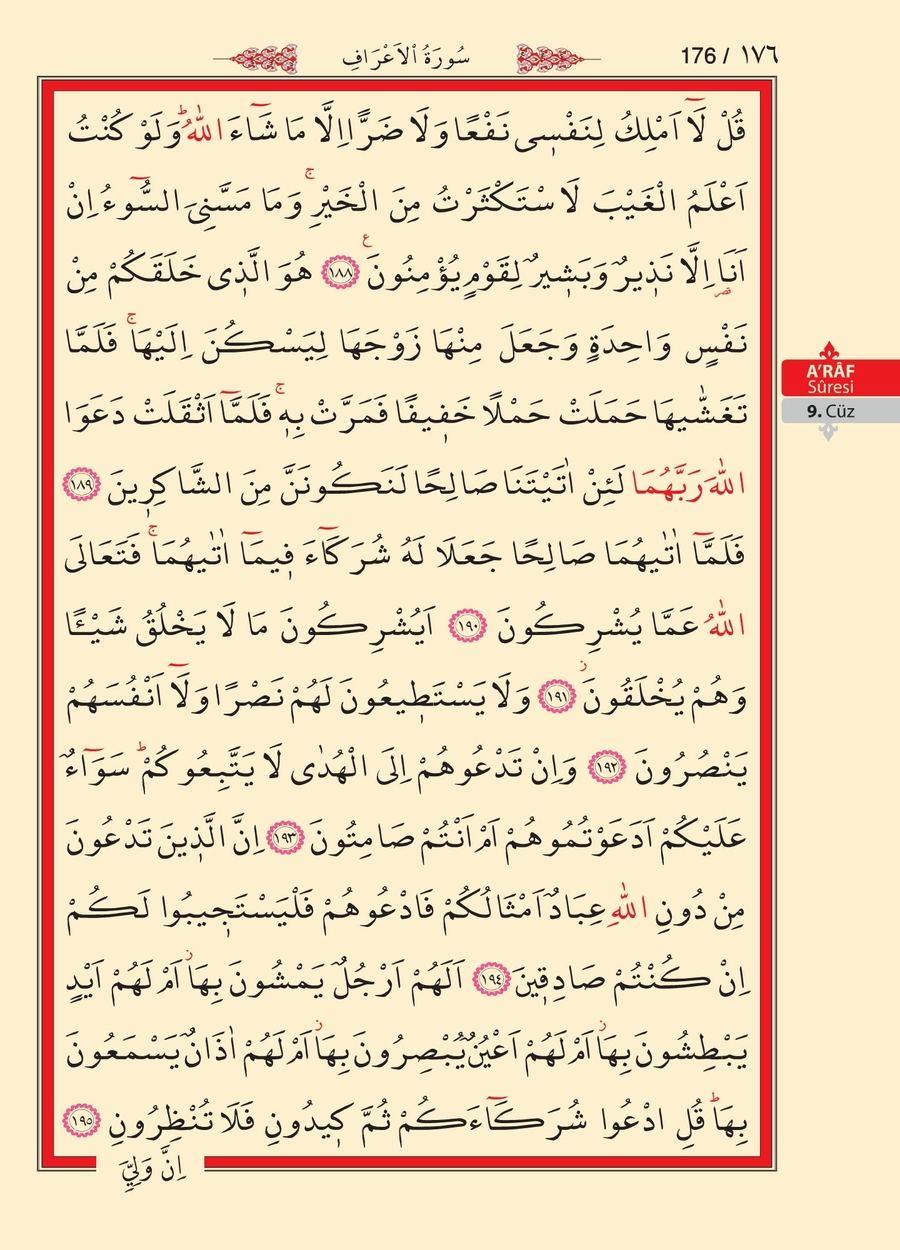 سُورَةُ الْاَعْرَافِ
176 / ١٧٦
قُلْ لَٓا اَمْلِكُ لِنَفْس۪ى نَفْعًا وَلَا ضَرًّا اِلَّا مَا شَٓاءَ اللّٰهُۜ وَلَوْ كُنْتُ
اَعْلَمُ الْغَيْبَ لَاسْتَكْثَرْتُ مِنَ الْخَيْرِۚ وَمَا مَسَّنِىَ السُّٓوءُ اِنْ
اَنَا۬ اِلَّا نَذ۪يرٌ وَبَش۪يرٌ لِقَوْمٍ يُؤْمِنُونَ ﴿١٨٨﴾ هُوَ الَّذ۪ى خَلَقَكُمْ مِنْ
نَفْسٍ وَاحِدَةٍ وَجَعَلَ مِنْهَا زَوْجَهَا لِيَسْكُنَ اِلَيْهَاۚ فَلَمَّا
تَغَشّٰيهَا حَمَلَتْ حَمْلًا خَف۪يفًا فَمَرَّتْ بِه۪ۚ فَلَمَّٓا اَثْقَلَتْ دَعَوَا
اللّٰهَ رَبَّهُمَا لَئِنْ اٰتَيْتَنَا صَالِحًا لَنَكُونَنَّ مِنَ الشَّاكِر۪ينَ ﴿١٨٩﴾
فَلَمَّٓا اٰتٰيهُمَا صَالِحًا جَعَلَا لَهُ شُرَكَٓاءَ ف۪يمَٓا اٰتٰيهُمَاۚ فَتَعَالَى
اللّٰهُ عَمَّا يُشْرِكُونَ ﴿١٩٠﴾ اَيُشْرِكُونَ مَا لَا يَخْلُقُ شَيْـًٔا
وَهُمْ يُخْلَقُونَۘ ﴿١٩١﴾ وَلَا يَسْتَط۪يعُونَ لَهُمْ نَصْرًا وَلَٓا اَنْفُسَهُمْ
يَنْصُرُونَ ﴿١٩٢﴾ وَاِنْ تَدْعُوهُمْ اِلَى الْهُدٰى لَا يَتَّبِعُوكُمْۜ سَوَٓاءٌ
عَلَيْكُمْ اَدَعَوْتُمُوهُمْ اَمْ اَنْتُمْ صَامِتُونَ ﴿١٩٣﴾ اِنَّ الَّذ۪ينَ تَدْعُونَ
مِنْ دُونِ اللّٰهِ عِبَادٌ اَمْثَالُكُمْ فَادْعُوهُمْ فَلْيَسْتَج۪يبُوا لَكُمْ
اِنْ كُنْتُمْ صَادِق۪ينَ ﴿١٩٤﴾ اَلَهُمْ اَرْجُلٌ يَمْشُونَ بِهَاۘ اَمْ لَهُمْ اَيْدٍ
يَبْطِشُونَ بِهَاۘ اَمْ لَهُمْ اَعْيُنٌ يُبْصِرُونَ بِهَاۘ اَمْ لَهُمْ اٰذَانٌ يَسْمَعُونَ
بِهَاۜ قُلِ ادْعُوا شُرَكَٓاءَكُمْ ثُمَّ ك۪يدُونِ فَلَا تُنْظِرُونِ ﴿١٩٥﴾
اِنَّ وَلِيِّىَ
A'RÂF
Sûresi
9. Cüz